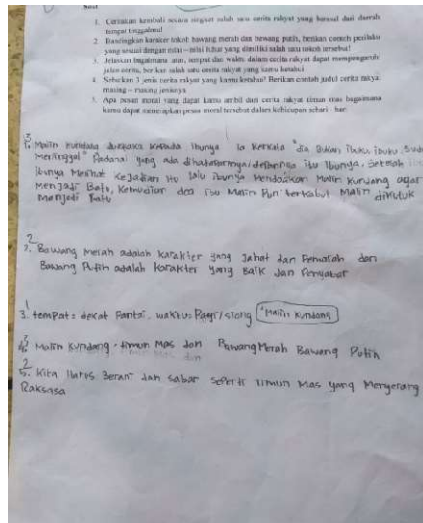 Soal
1. Ceritakan kembali secara singkat salah satu cerita rakyat yang berasal dari daerah
tempat tinggalmu!
2. Bandingkan karakter tokoh bawang merah dan bawang putih, berikan contoh perilaku
yang sesuai dengan nilai - nilai luhur yang dimiliki salah satu tokoh tersebut!
3. Jelaskan bagaimana alur, tempat dan waktu dalam cerita rakyat dapat mempengaruhi
jalan cerita, berikan salah satu cerita rakyat yang kamu ketahui
4. Sebutkan 3 jenis cerita rakyat yang kamu ketahui! Berikan contoh judul cerita rakyat
masing - masing jenisnya
5. Apa pesan moral yang dapat kamu ambil dari cerita rakyat timun mas bagaimana
kamu dapat menerapkan pesan moral tersebut dalam kehidupan sehari - hari
3
1. Malin Kundang durhaka kepada Ibunya Ia berkata "dia bukan ibuku, ibuku Sudah
meninggal" Padahal yang ada dihadapannya itu Ibunya. Setelah
ibunya Melihat kejadian itu lalu ibunya Mendoakan Malin Kundang agar
Menjadi Batu, Kemudian doa ibu Malin Pun terkabul Malin dikutuk
menjadi Batu
2
2. Bawang merah adalah karakter yang Jahat dan Pemarah dan
Bawang Putih adalah karakter yang Baik dan Penyabar
1
3. tempat: dekat Pantai, waktu: Pagi/siang Malin Kundang
3
4. Malin Kundang, timun Mas dan Bawang Merah Bawang Putih
2
5. Kita Harus Berani dan sabar seperti timun Mas yang Menyerang
Raksasa